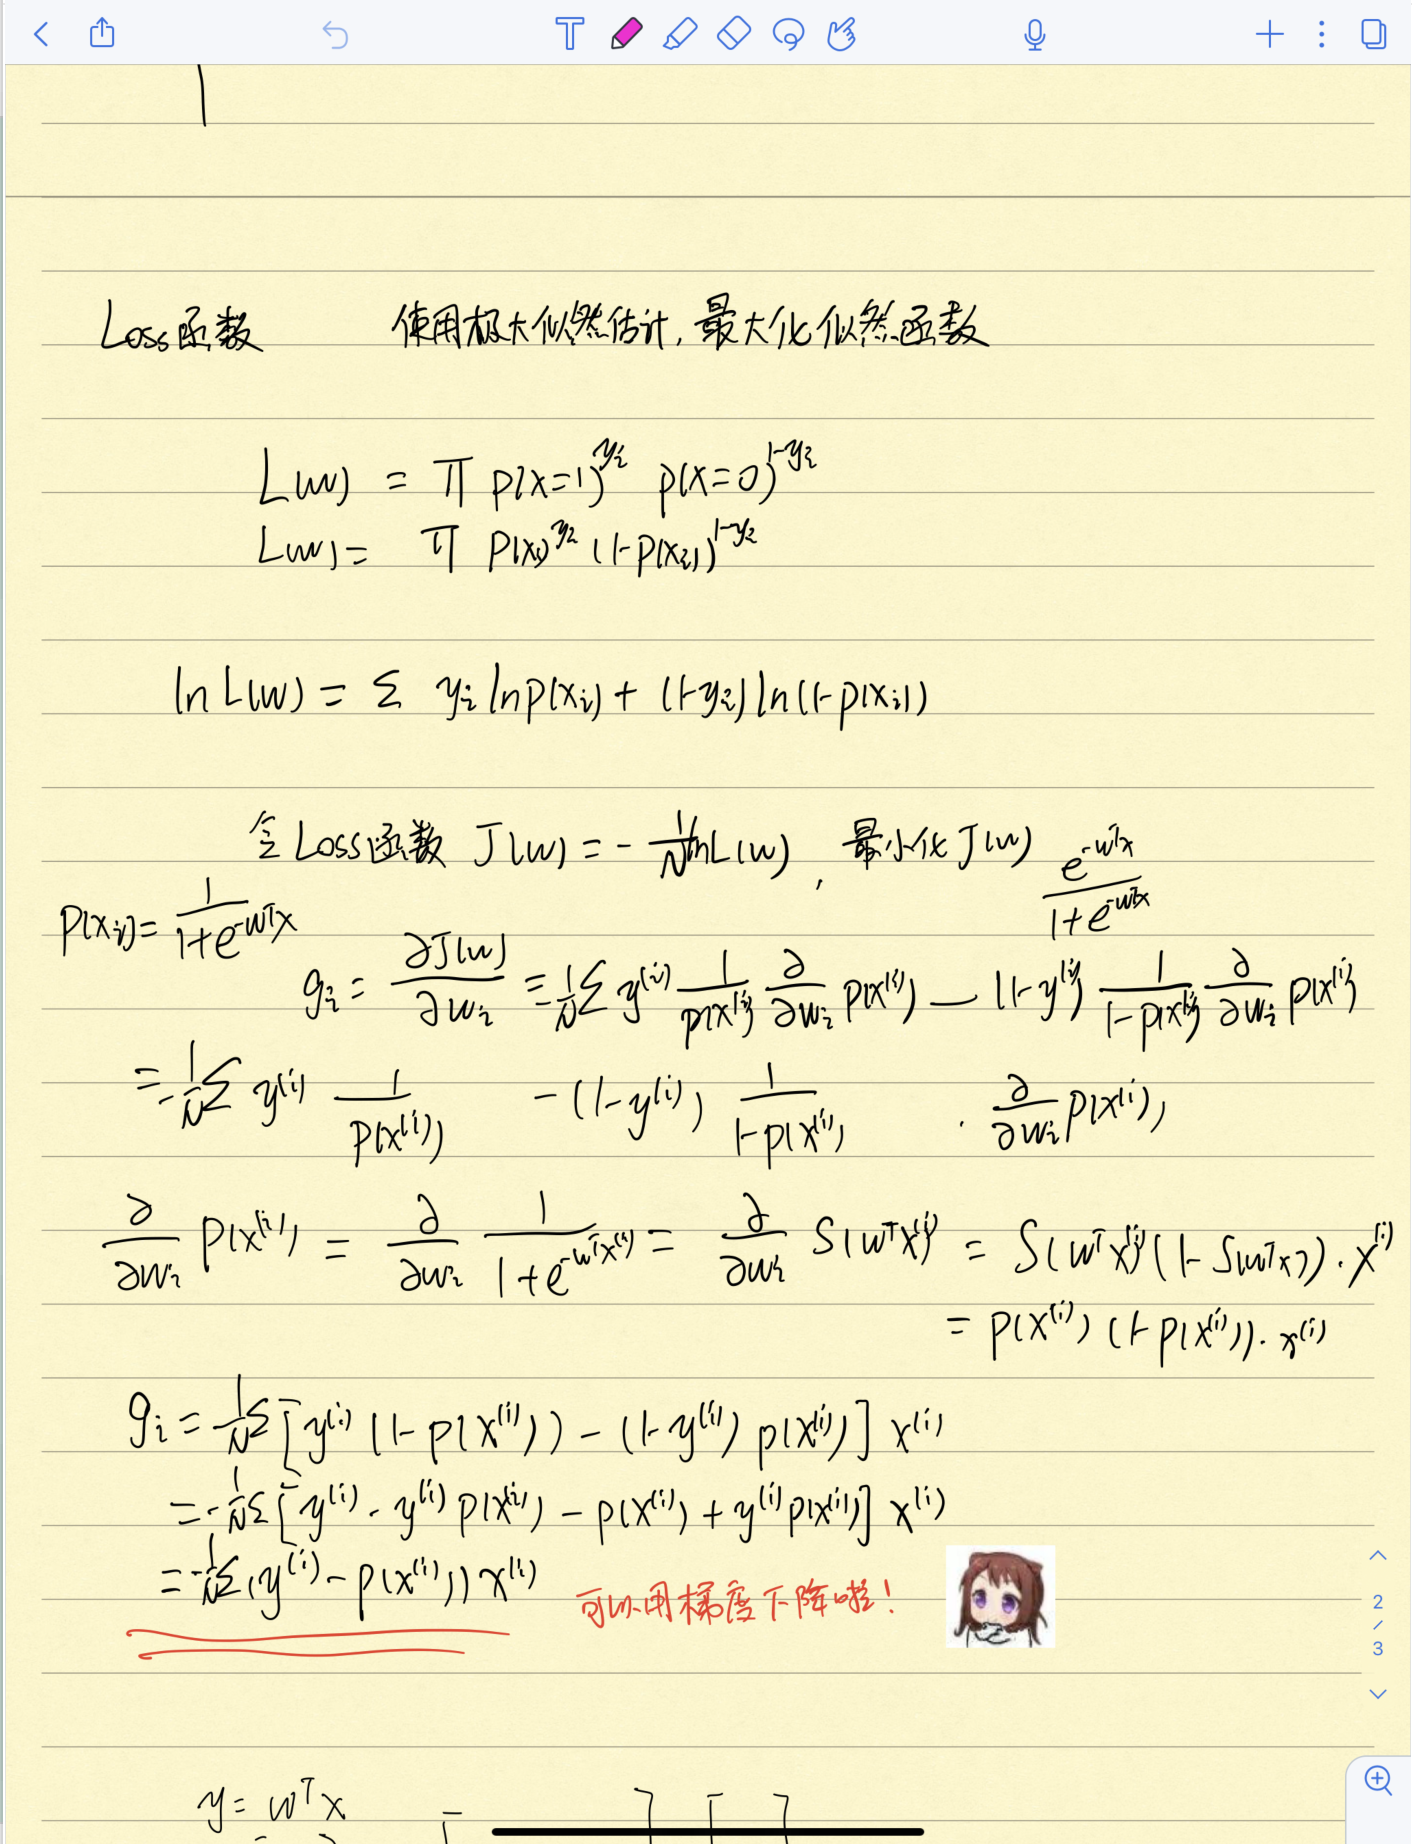 Loss函数 使用极大似然估计, 最大化似然函数
L(w) = π p(x=1)^{y_i} p(x=0)^{1-y_i}
L(w) = π p(x_i)^{y_i} (1-p(x_i))^{1-y_i}
ln L(w) = Σ y_i ln p(x_i) + (1-y_i) ln(1-p(x_i))
令 Loss函数 J(w) = - 1/N ln L(w), 最小化 J(w) e^{-w^Tx}/(1+e^{-w^Tx})
p(x_i) = 1/(1+e^{-w^Tx})
g_i = ∂J(w)/∂w_i = -1/N Σ y^{(i)} 1/p(x^{(i)}) ∂/∂w_i p(x^{(i)}) - (1-y^{(i)}) 1/(1-p(x^{(i)})) ∂/∂w_i p(x^{(i)})
= -1/N Σ y^{(i)} 1/p(x^{(i)}) - (1-y^{(i)}) 1/(1-p(x^{(i)})) · ∂/∂w_i p(x^{(i)})
∂/∂w_i p(x^{(i)}) = ∂/∂w_i 1/(1+e^{-w^Tx^{(i)}}) = ∂/∂w_i S(w^Tx^{(i)}) = S(w^Tx^{(i)})(1-S(w^Tx)) · x^{(i)}
= p(x^{(i)}) (1-p(x^{(i)})) · x^{(i)}
g_i = -1/N Σ [y^{(i)} (1-p(x^{(i)})) - (1-y^{(i)}) p(x^{(i)})] x^{(i)}
= -1/N Σ [y^{(i)} - y^{(i)} p(x^{(i)}) - p(x^{(i)}) + y^{(i)} p(x^{(i)})] x^{(i)}
= -1/N Σ (y^{(i)} - p(x^{(i)})) x^{(i)}
可以用梯度下降啦!
2
/
3
y = w^T x